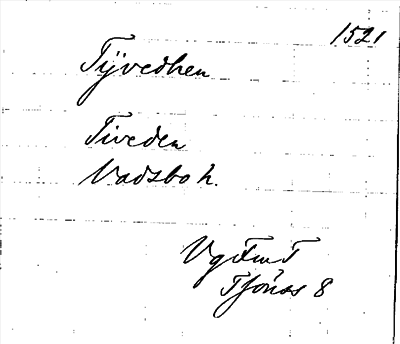 1521
Tÿvedhen
Tiveden
Vadsbo h.
VgFmT
Tjönss 8